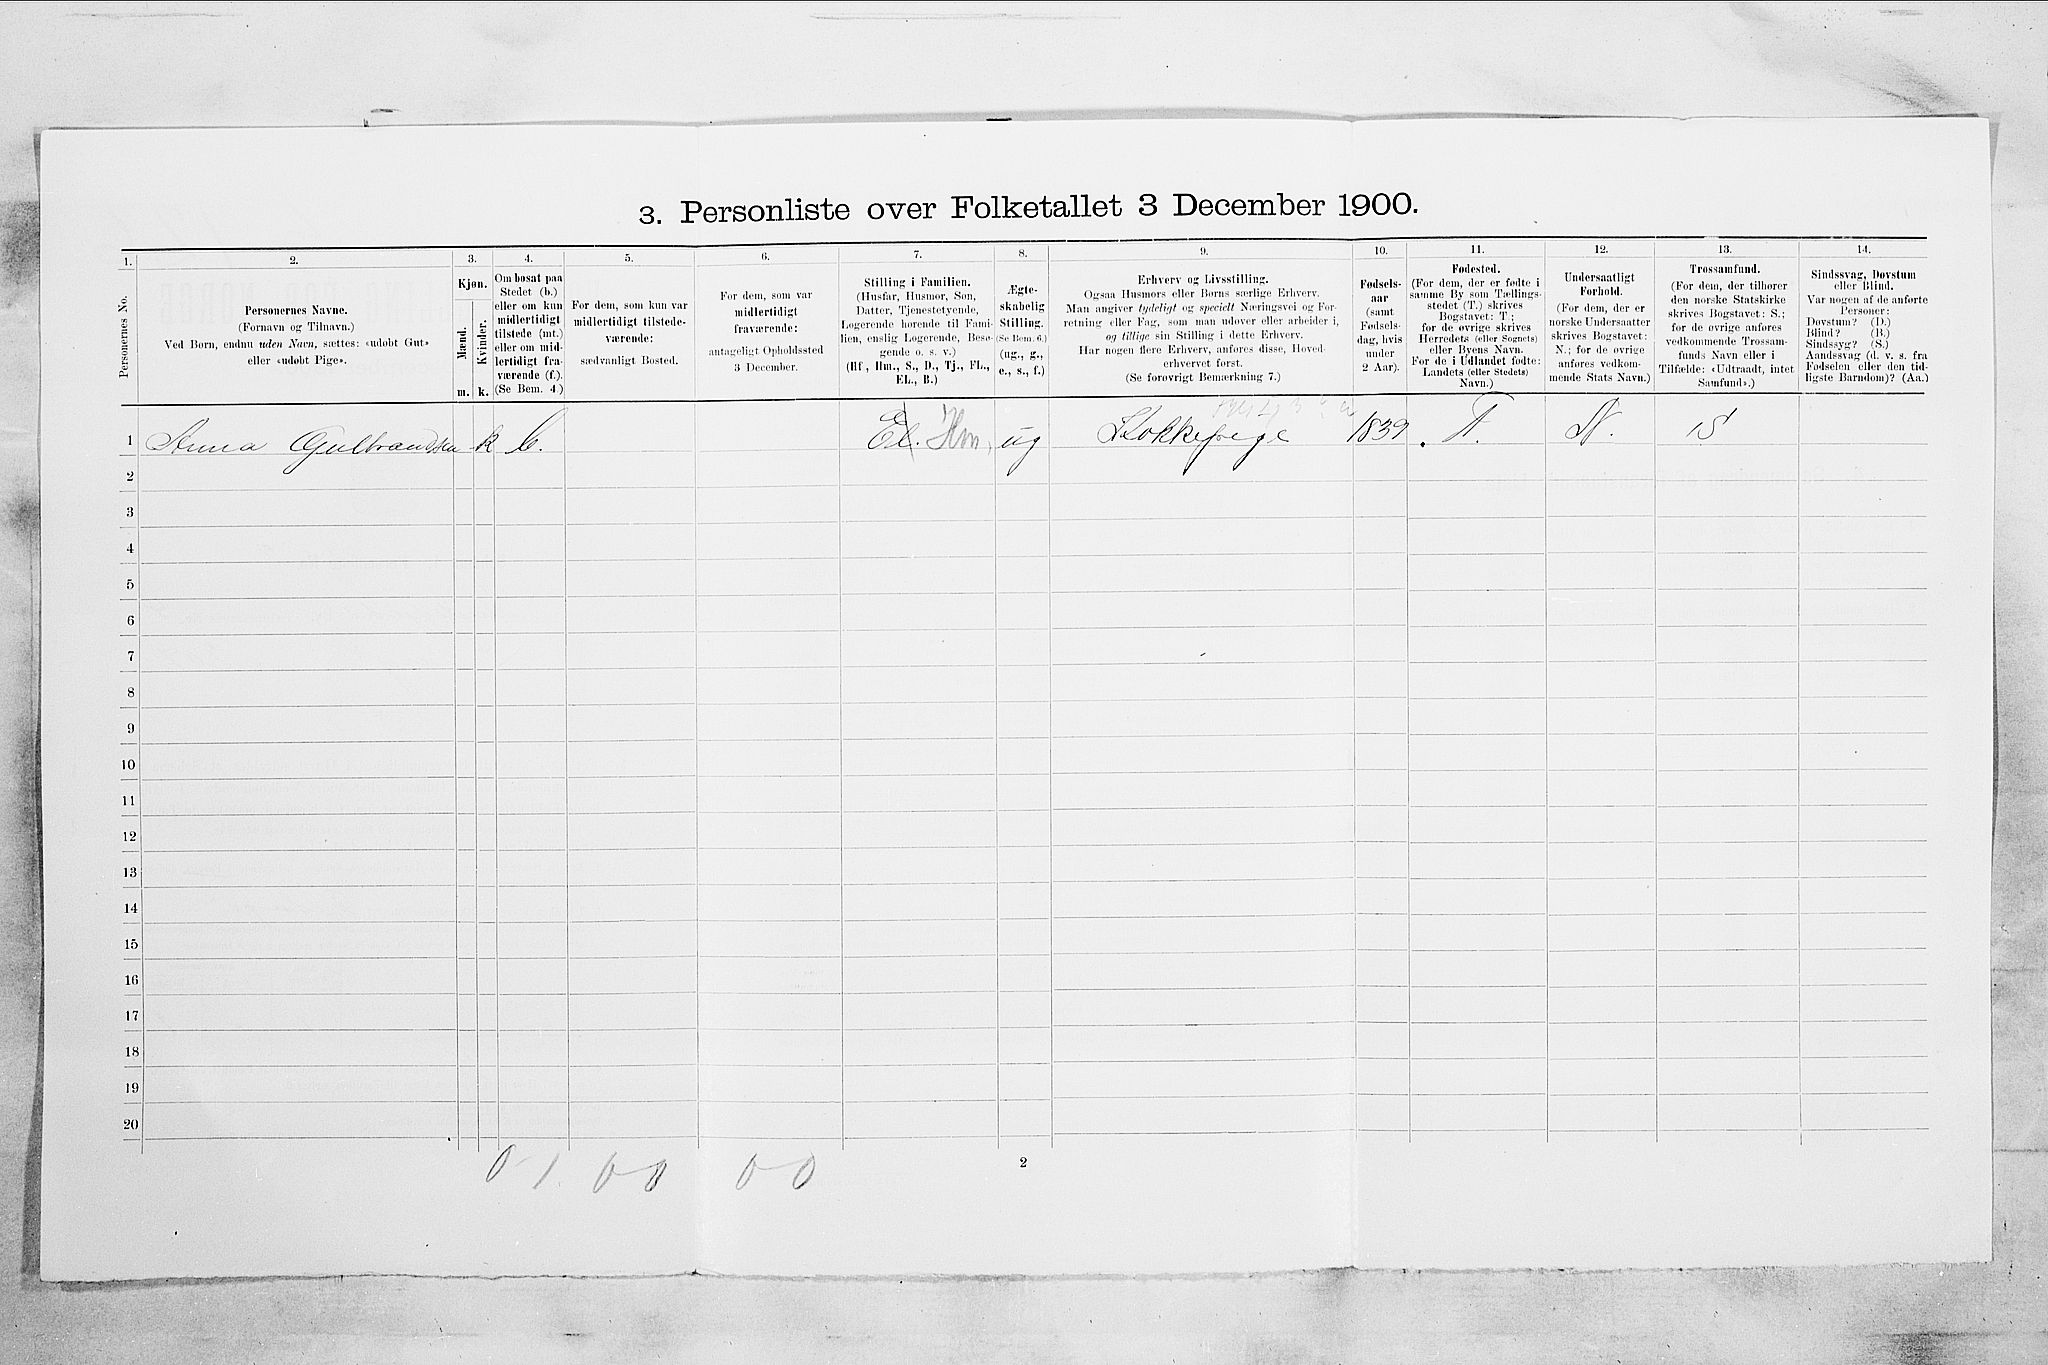 3. Personliste over Folketallet 3 December 1900.
1. 2. 3. 4. 5. 6. 7. 8. 9. 10. 11. 12. 13. 14.
Personernes No.
Personernes Navne.
(Fornavn og Tilnavn.)
Ved Børn, endnu uden Navn, sættes: «udøbt Gut»
eller «udøbt Pige».
Kjøn.
Mænd.
Kvinder.
m. k.
Om bosat paa
Stedet (b.)
eller om kun
midlertidigt
tilstede (mt.)
eller om mid-
lertidigt fra-
værende (f.).
(Se Bem. 4.)
For dem, som kun var
midlertidigt tilstede-
værende:
sædvanligt Bosted.
For dem, som var
midlertidigt
fraværende:
antageligt Opholdssted
3 December.
Stilling i Familien.
(Husfar, Husmor, Søn,
Datter, Tjenestetyende,
Logerende hørende til Fami-
lien, enslig Logerende, Besø-
gende o. s. v.)
(Hf., Hm., S., D., Tj., FL.,
EL., B.)
Ægte-
skabelig
Stilling.
(Se Bem. 6.)
(ug., g.,
e., s., f.)
Erhverv og Livsstilling.
Ogsaa Husmors eller Børns særlige Erhverv.
Man angiver tydeligt og specielt Næringsvei og For-
retning eller Fag, som man udøver eller arbeider i,
og tillige sin Stilling i dette Erhverv.
Har nogen flere Erhverv, anføres disse, Hoved-
erhvervet først.
(Se forøvrigt Bemærkning 7.)
Fødsels-
aar
(samt
Fødsels-
dag, hvis
under
2 Aar).
Fødested.
(For dem, der er fødte i
samme By som Tællings-
stedet (T.) skrives
Bogstavet: T.;
for de øvrige skrives
Herredets (eller Sognets)
eller Byens Navn.
For de i Udlandet fødte:
Landets (eller Stedets)
Navn.)
Undersaatligt
Forhold.
(For dem, der er
norske Undersaatter
skrives Bogstavet:
N.; for de øvrige
anføres vedkom-
mende Stats Navn.)
Trossamfund.
(For dem, der tilhører
den norske Statskirke
skrives Bogstavet: S.;
for de øvrige anføres
vedkommende Trossam-
funds Navn eller i
Tilfælde: «Udtraadt, intet
Samfund».)
Sindssvag, Døvstum
eller Blind.
Var nogen af de anførte
Personer:
Døvstum? (D.)
Blind? (B.)
Sindssyg? (S.)
Aandssvag (d. v. s. fra
Fødselen eller den tid-
ligste Barndom)? (Aa.)
1 Anna Gulbrandsen k b. El. Hm. ug Kokkepige 1839 T. N. S
2
3
4
5
6
7
8
9
10
11
12
13
14
15
16
17
18
19
20
0-1 0-0 0-0
2